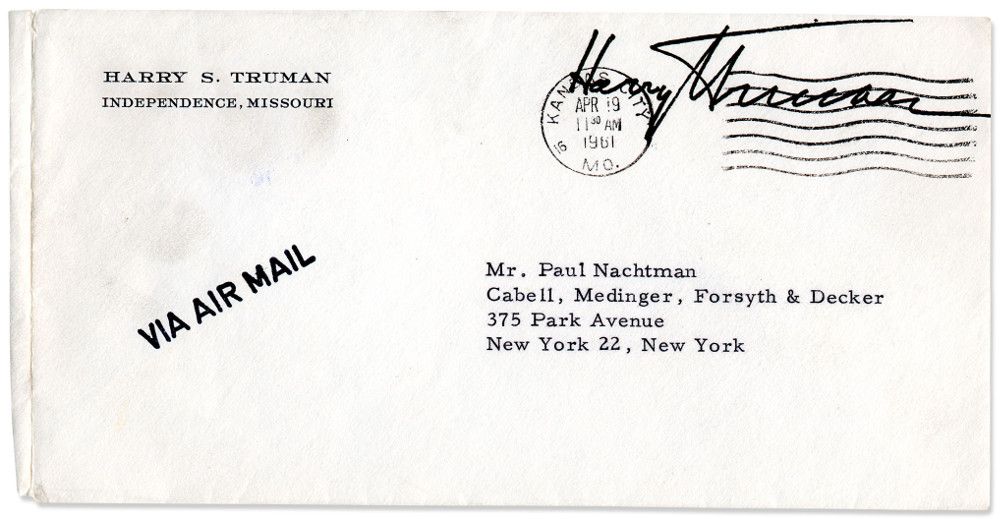 HARRY S. TRUMAN
INDEPENDENCE, MISSOURI
Harry Truman
KANSAS CITY
APR 19
11 30 AM
1961
MO.
16
VIA AIR MAIL
Mr. Paul Nachtman
Cabell, Medinger, Forsyth & Decker
375 Park Avenue
New York 22, New York